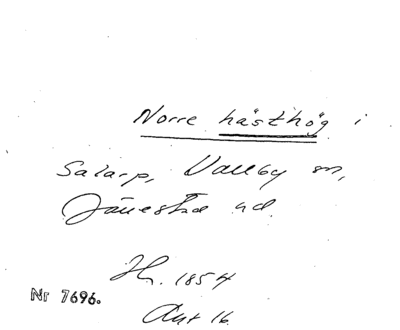 Norre hästhög i
Salarp, Vallby sn,
Järrestad hd.
Hs. 1854
Nr 7696.
Akt 16.